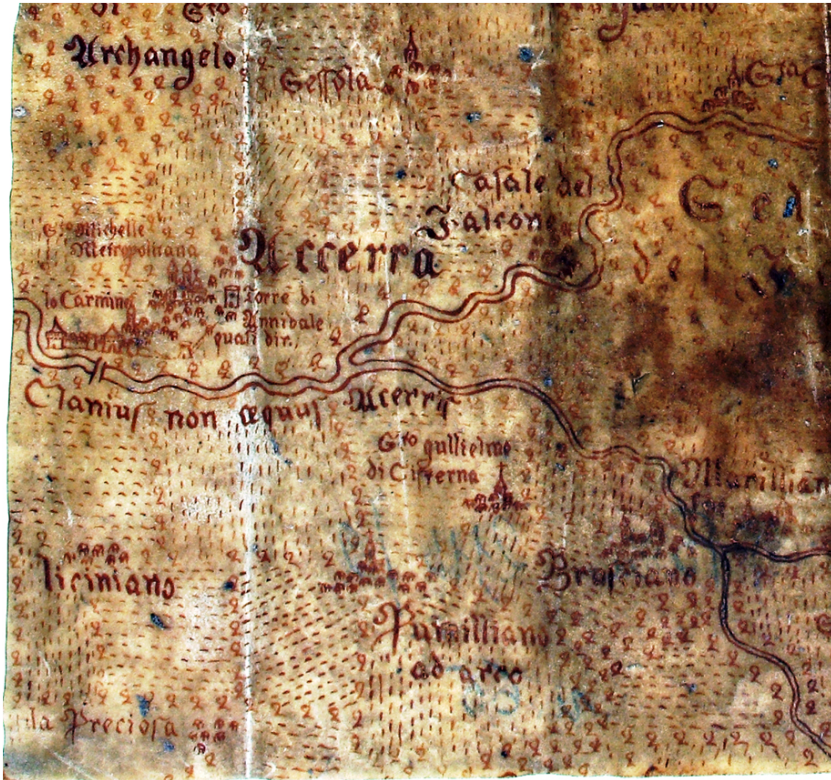 Sto
Archangelo
Sessola
Sta C
Casale del
Falcone
Sto Michelle
Metropolitana
Accerra
lo Carmino
Torre di
Annibale
quasi dir.
Clanius non æquus Acerris
Sto gullielmo
di Cisterna
Marillian
liciniano
Brosciano
Pumilliano
ad arco
la Preciosa